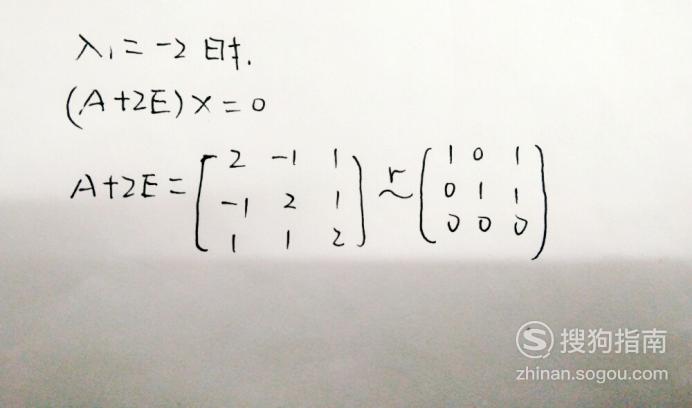 λ₁ = -2 时.
(A+2E)x = 0
A+2E = [2 -1 1; -1 2 1; 1 1 2] ~r (1 0 1; 0 1 1; 0 0 0)
搜狗指南
zhinan.sogou.com